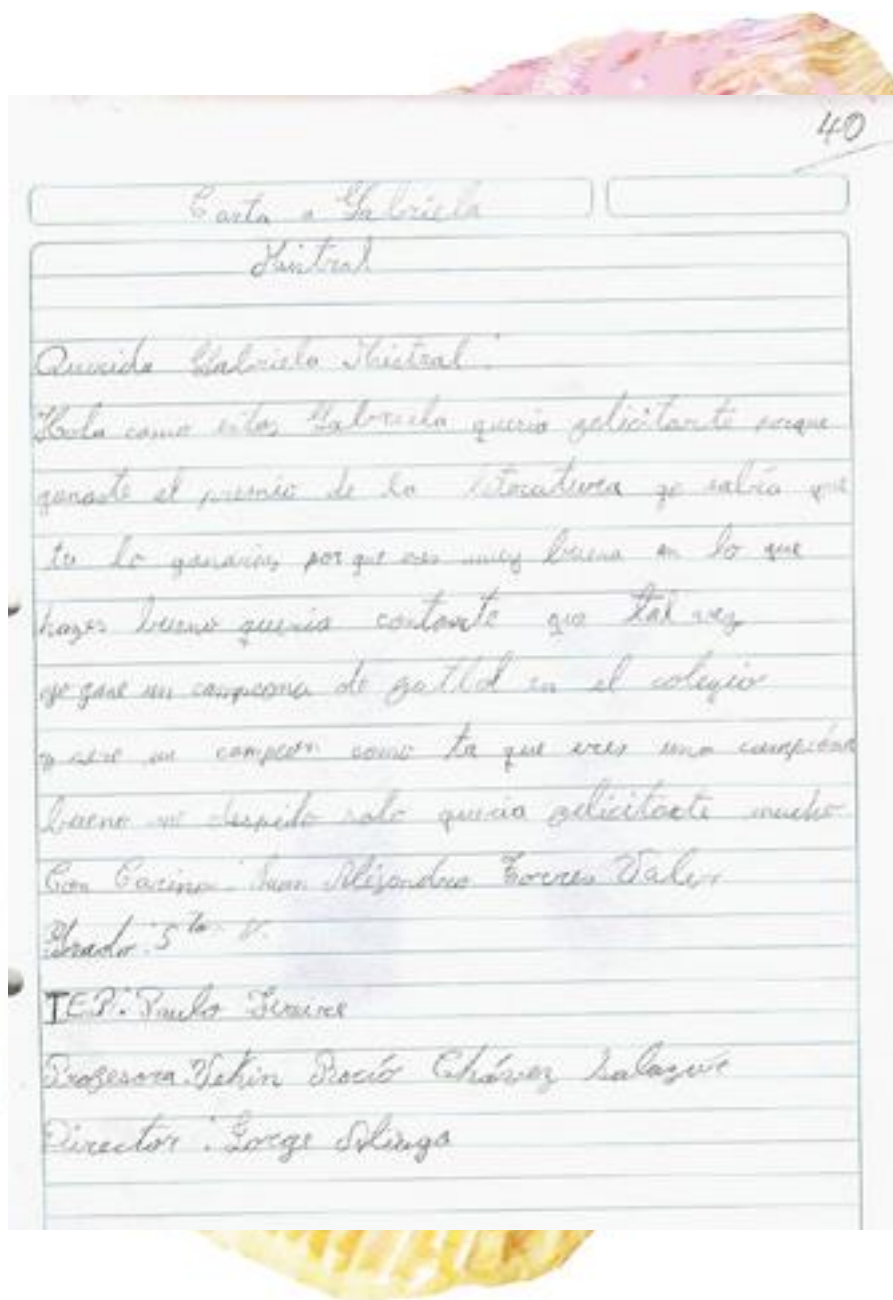 40
Carta a Gabriela
Mistral
Querida Gabriela Mistral:
Hola como estas Gabriela queria felicitarte porque
ganaste el premio de la literatura yo sabía que
tu lo ganarias porque eres muy buena en lo que
hazes bueno queria contarte que tal vez
yo gane un campeona de futbol en el colegio
y sere un campeon como tu que eres una campeona
bueno me despido solo queria felicitarte mucho
Con Carino: Juan Alejandro Torres
Grado: 5to
IEP: Paulo Freire
Profesora: Rocío Chávez Salazar
Director: Jorge Aliaga